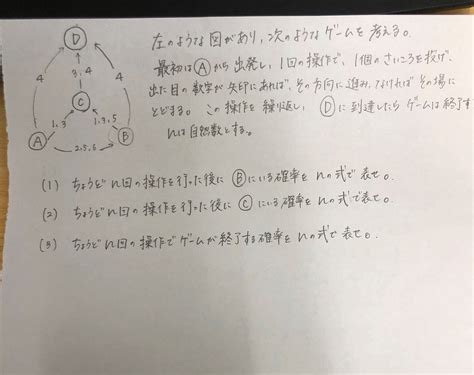 左のような図があり、次のようなゲームを考える。
最初はⒶから出発し、1回の操作で、1個のさいころを投げ、
出た目の数字が矢印にあれば、その方向に進み、なければその場に
とどまる。この操作を繰り返し、Ⓓに到達したらゲームは終了す
nは自然数とする。
Ⓓ
4
3,4
4
Ⓒ
1,3
1,3,5
Ⓐ
Ⓑ
2,5,6
(1) ちょうどn回の操作を行った後にⒷにいる確率をnの式で表せ。
(2) ちょうどn回の操作を行った後にⒸにいる確率をnの式で表せ。
(3) ちょうどn回の操作でゲームが終了する確率をnの式で表せ。